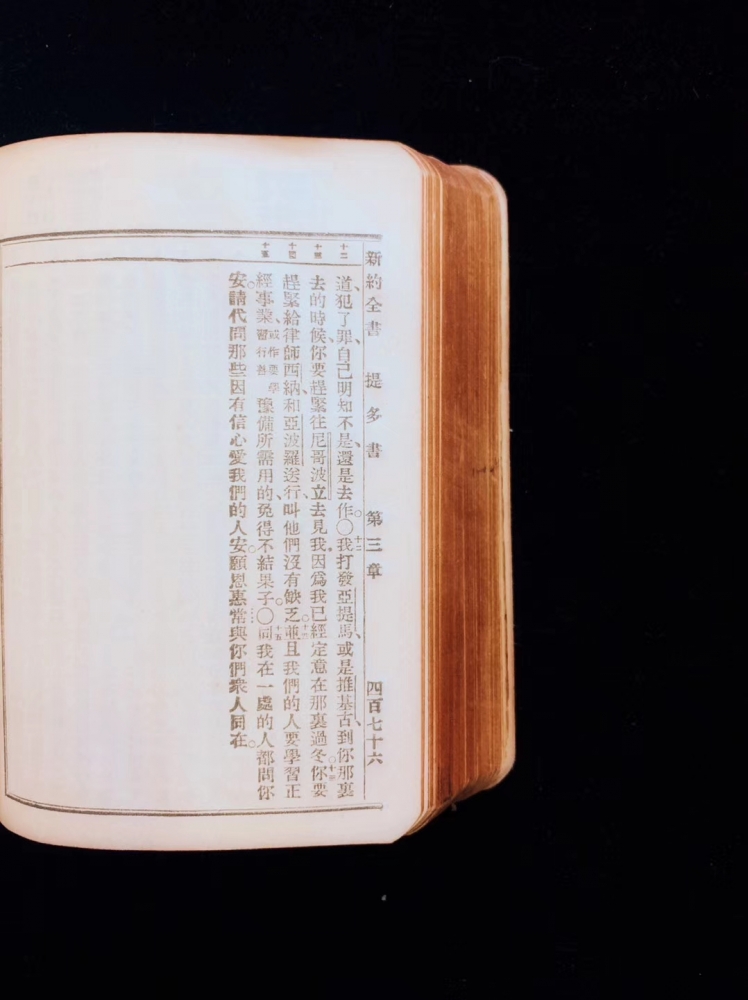 新約全書 提多書 第三章 四百七十六
十二
十三
十四
十五
道、犯了罪、自己明知不是、還是去作。〇十二我打發亞提馬、或是推基古、到你那裏
去的時候、你要趕緊往尼哥波立去見我、因爲我已經定意在那裏過冬。十三你要
趕緊給律師西納、和亞波羅送行、叫他們沒有缺乏。十四並且我們的人要學習正
經事業、或作要學習行善 豫備所需用的、免得不結果子。〇十五同我在一處的人都問你
安。請代問那些因有信心愛我們的人安。願恩惠常與你們衆人同在。